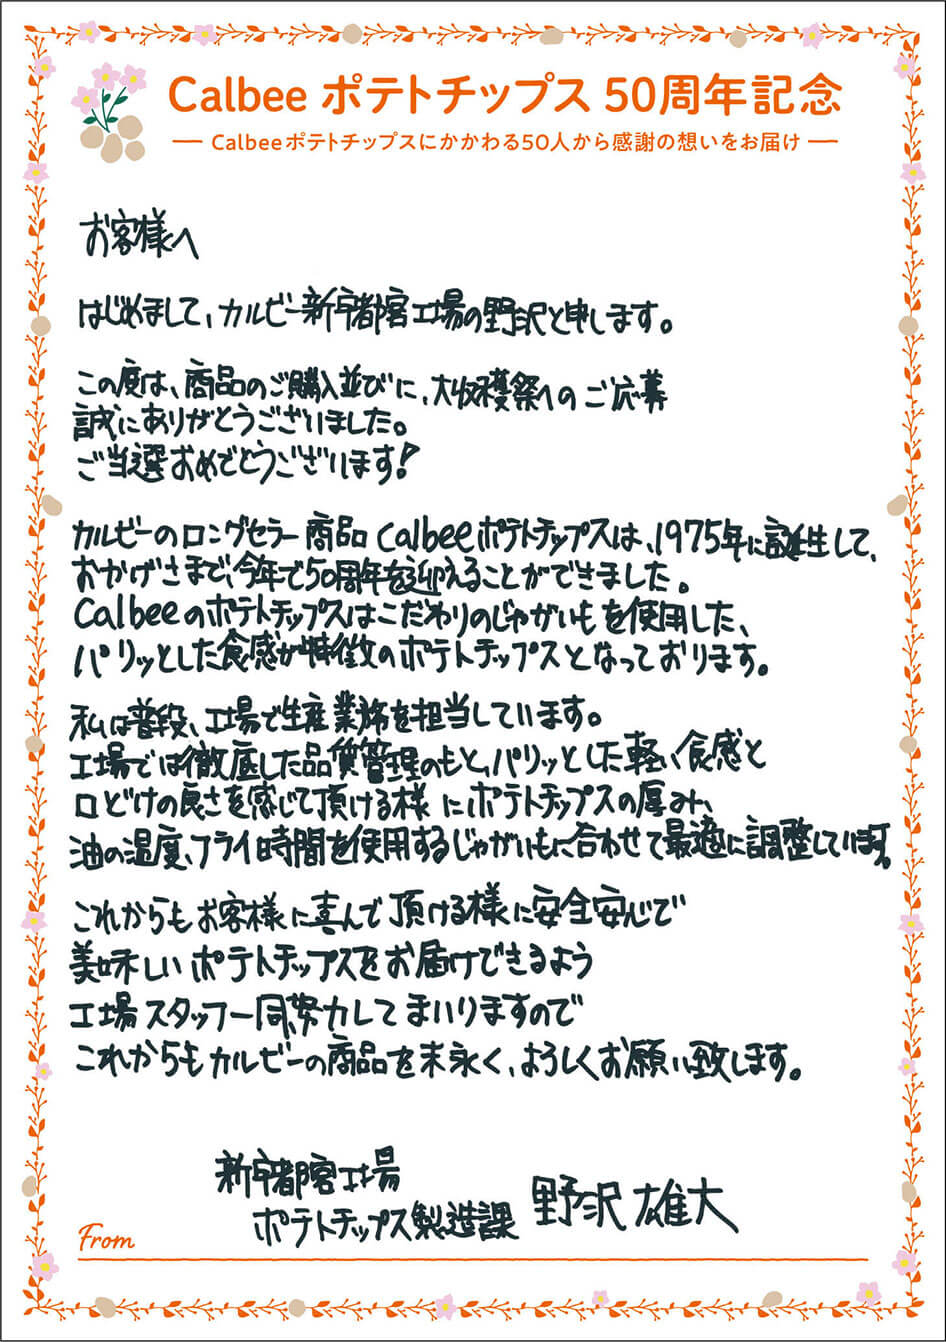 Calbee ポテトチップス 50周年記念
Calbeeポテトチップスにかかわる50人から感謝の想いをお届け
お客様へ
はじめまして、カルビー新宇都宮工場の野沢と申します。
この度は、商品のご購入並びに、大収穫祭へのご応募
誠にありがとうございました。
ご当選おめでとうございます!
カルビーのロングセラー商品Calbeeポテトチップスは、1975年に誕生して、
おかげさまで、今年で50周年を迎えることができました。
Calbeeのポテトチップスはこだわりのじゃがいもを使用した、
パリッとした食感が特徴のポテトチップスとなっております。
私は普段、工場で生産業務を担当しています。
工場では徹底した品質管理のもと、パリッとした軽い食感と
口どけの良さを感じて頂ける様にポテトチップスの厚み、
油の温度、フライ時間を使用するじゃがいもに合わせて最適に調整しています。
これからもお客様に喜んで頂ける様に安全安心で
美味しいポテトチップスをお届けできるよう
工場スタッフ一同、努力してまいりますので
これからもカルビーの商品を末永く、よろしくお願い致します。
新宇都宮工場
ポテトチップス製造課 野沢 雄大
From